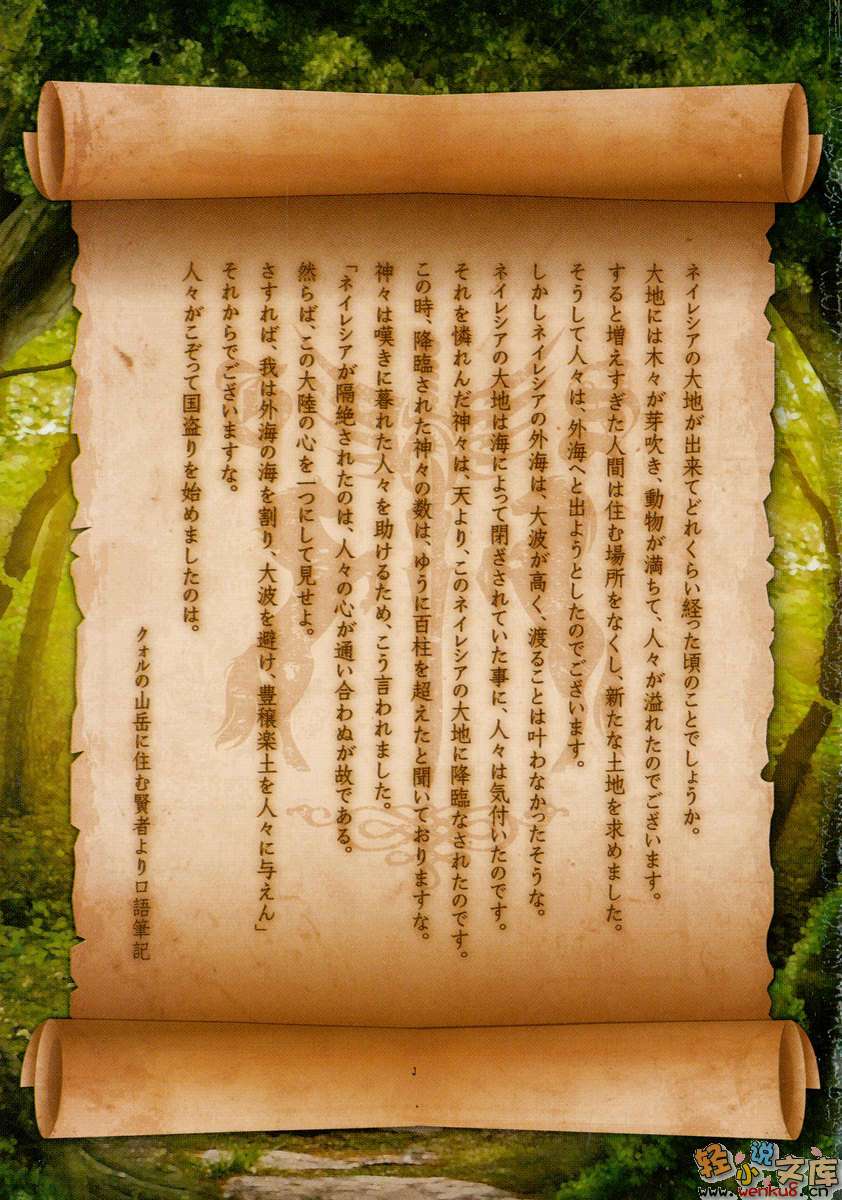 ネイレシアの大地が出来てどれくらい経った頃のことでしょうか。
大地には木々が芽吹き、動物が満ちて、人々が溢れたのでございます。
すると増えすぎた人間は住む場所をなくし、新たな土地を求めました。
そうして人々は、外海へと出ようとしたのでございます。
しかしネイレシアの外海は、大波が高く、渡ることは叶わなかったそうな。
ネイレシアの大地は海によって閉ざされていた事に、人々は気付いたのです。
それを憐れんだ神々は、天より、このネイレシアの大地に降臨なされたのです。
この時、降臨された神々の数は、ゆうに百柱を超えたと聞いておりますな。
神々は嘆きに暮れた人々を助けるため、こう言われました。
「ネイレシアが隔絶されたのは、人々の心が通い合わぬが故である。
然らば、この大陸の心を一つにして見せよ。
さすれば、我は外海の海を割り、大波を避け、豊穣楽土を人々に与えん」
それからでございますな。
人々がこぞって国盗りを始めましたのは。
クォルの山岳に住む賢者より口語筆記
轻小说文库
www.wenku8.cn